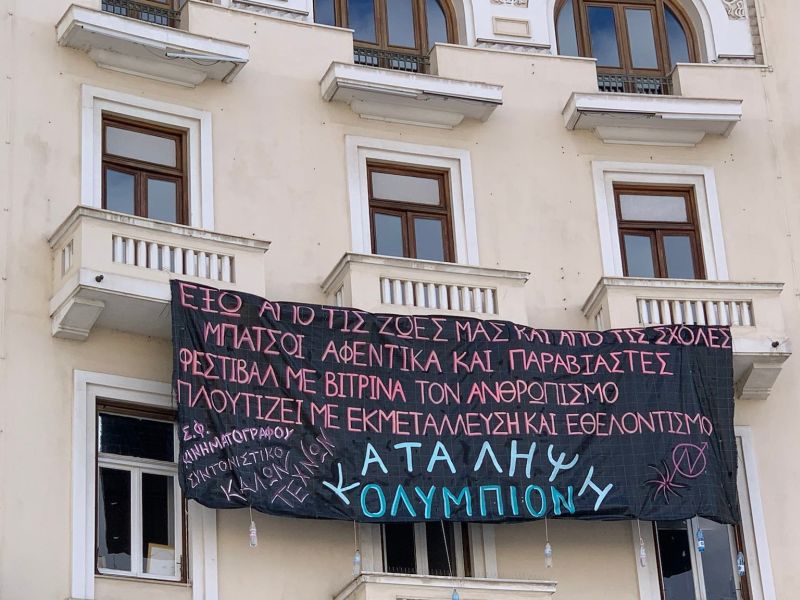 ΕΞΩ ΑΠΟ ΤΙΣ ΖΩΕΣ ΜΑΣ ΚΑΙ ΑΠΟ ΤΙΣ ΣΧΟΛΕΣ
ΜΠΑΤΣΟΙ ΑΦΕΝΤΙΚΑ ΚΑΙ ΠΑΡΑΒΙΑΣΤΕΣ
ΦΕΣΤΙΒΑΛ ΜΕ ΒΙΤΡΙΝΑ ΤΟΝ ΑΝΘΡΩΠΙΣΜΟ
ΠΛΟΥΤΙΖΕΙ ΜΕ ΕΚΜΕΤΑΛΛΕΥΣΗ ΚΑΙ ΕΘΕΛΟΝΤΙΣΜΟ
Σ.Φ.
ΚΙΝΗΜΑΤΟΓΡΑΦΟΥ
ΣΥΝΤΟΝΙΣΤΙΚΟ
ΚΑΛΩΝ
ΤΕΧΝΩΝ
ΚΑΤΑΛΗΨΗ
ΟΛΥΜΠΙΟΝ